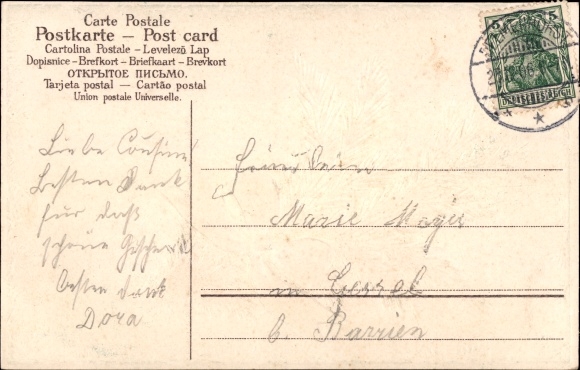 Carte Postale
Postkarte – Post card
Cartolina Postale – Levelező Lap
Dopisnice – Brefkort – Briefkaart – Brevkort
ОТКРЫТОЕ ПИСЬМО.
Tarjeta postal — Cartão postal
Union postale Universelle.
5 5
Liebe Cousine!
Besten Dank
für daß
schöne Geschenk
besten Dank
Dora
Marie Meyer
in Gessel
b. Barrien